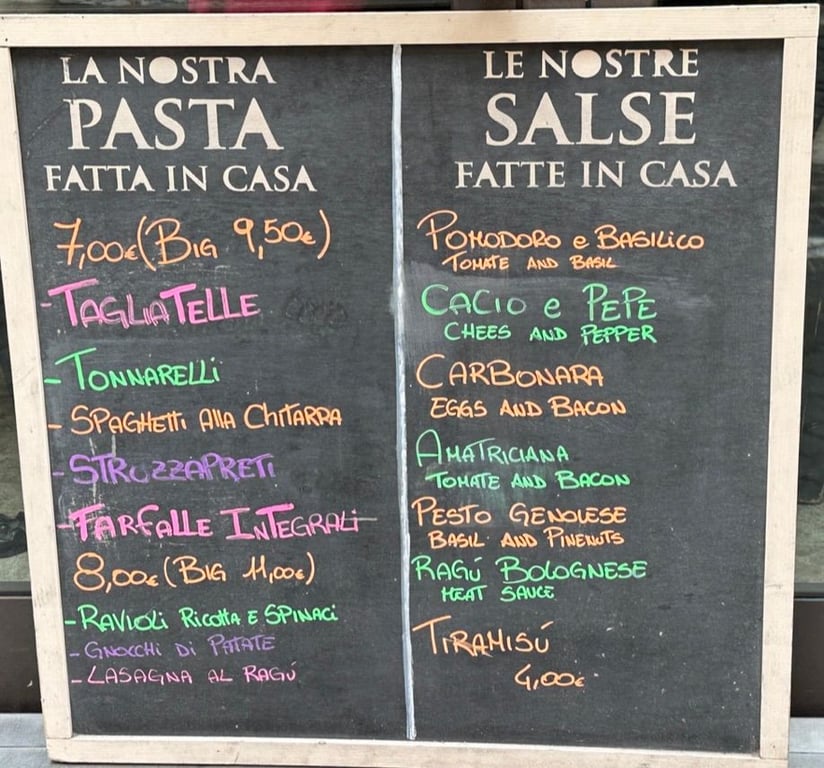 LA NOSTRA
PASTA
FATTA IN CASA
7,00€ (BIG 9,50€)
- TAGLIATELLE
- TONNARELLI
- SPAGHETTI ALLA CHITARRA
- STROZZAPRETI
- FARFALLE INTEGRALI
8,00€ (BIG 11,00€)
- RAVIOLI RICOTTA E SPINACI
- GNOCCHI DI PATATE
- LASAGNA AL RAGÚ
LE NOSTRE
SALSE
FATTE IN CASA
POMODORO e BASILICO
TOMATE AND BASIL
CACIO e PEPE
CHEES AND PEPPER
CARBONARA
EGGS AND BACON
AMATRICIANA
TOMATE AND BACON
PESTO GENOVESE
BASIL AND PINENUTS
RAGÚ BOLOGNESE
MEAT SAUCE
TIRAMISÚ
4,00€